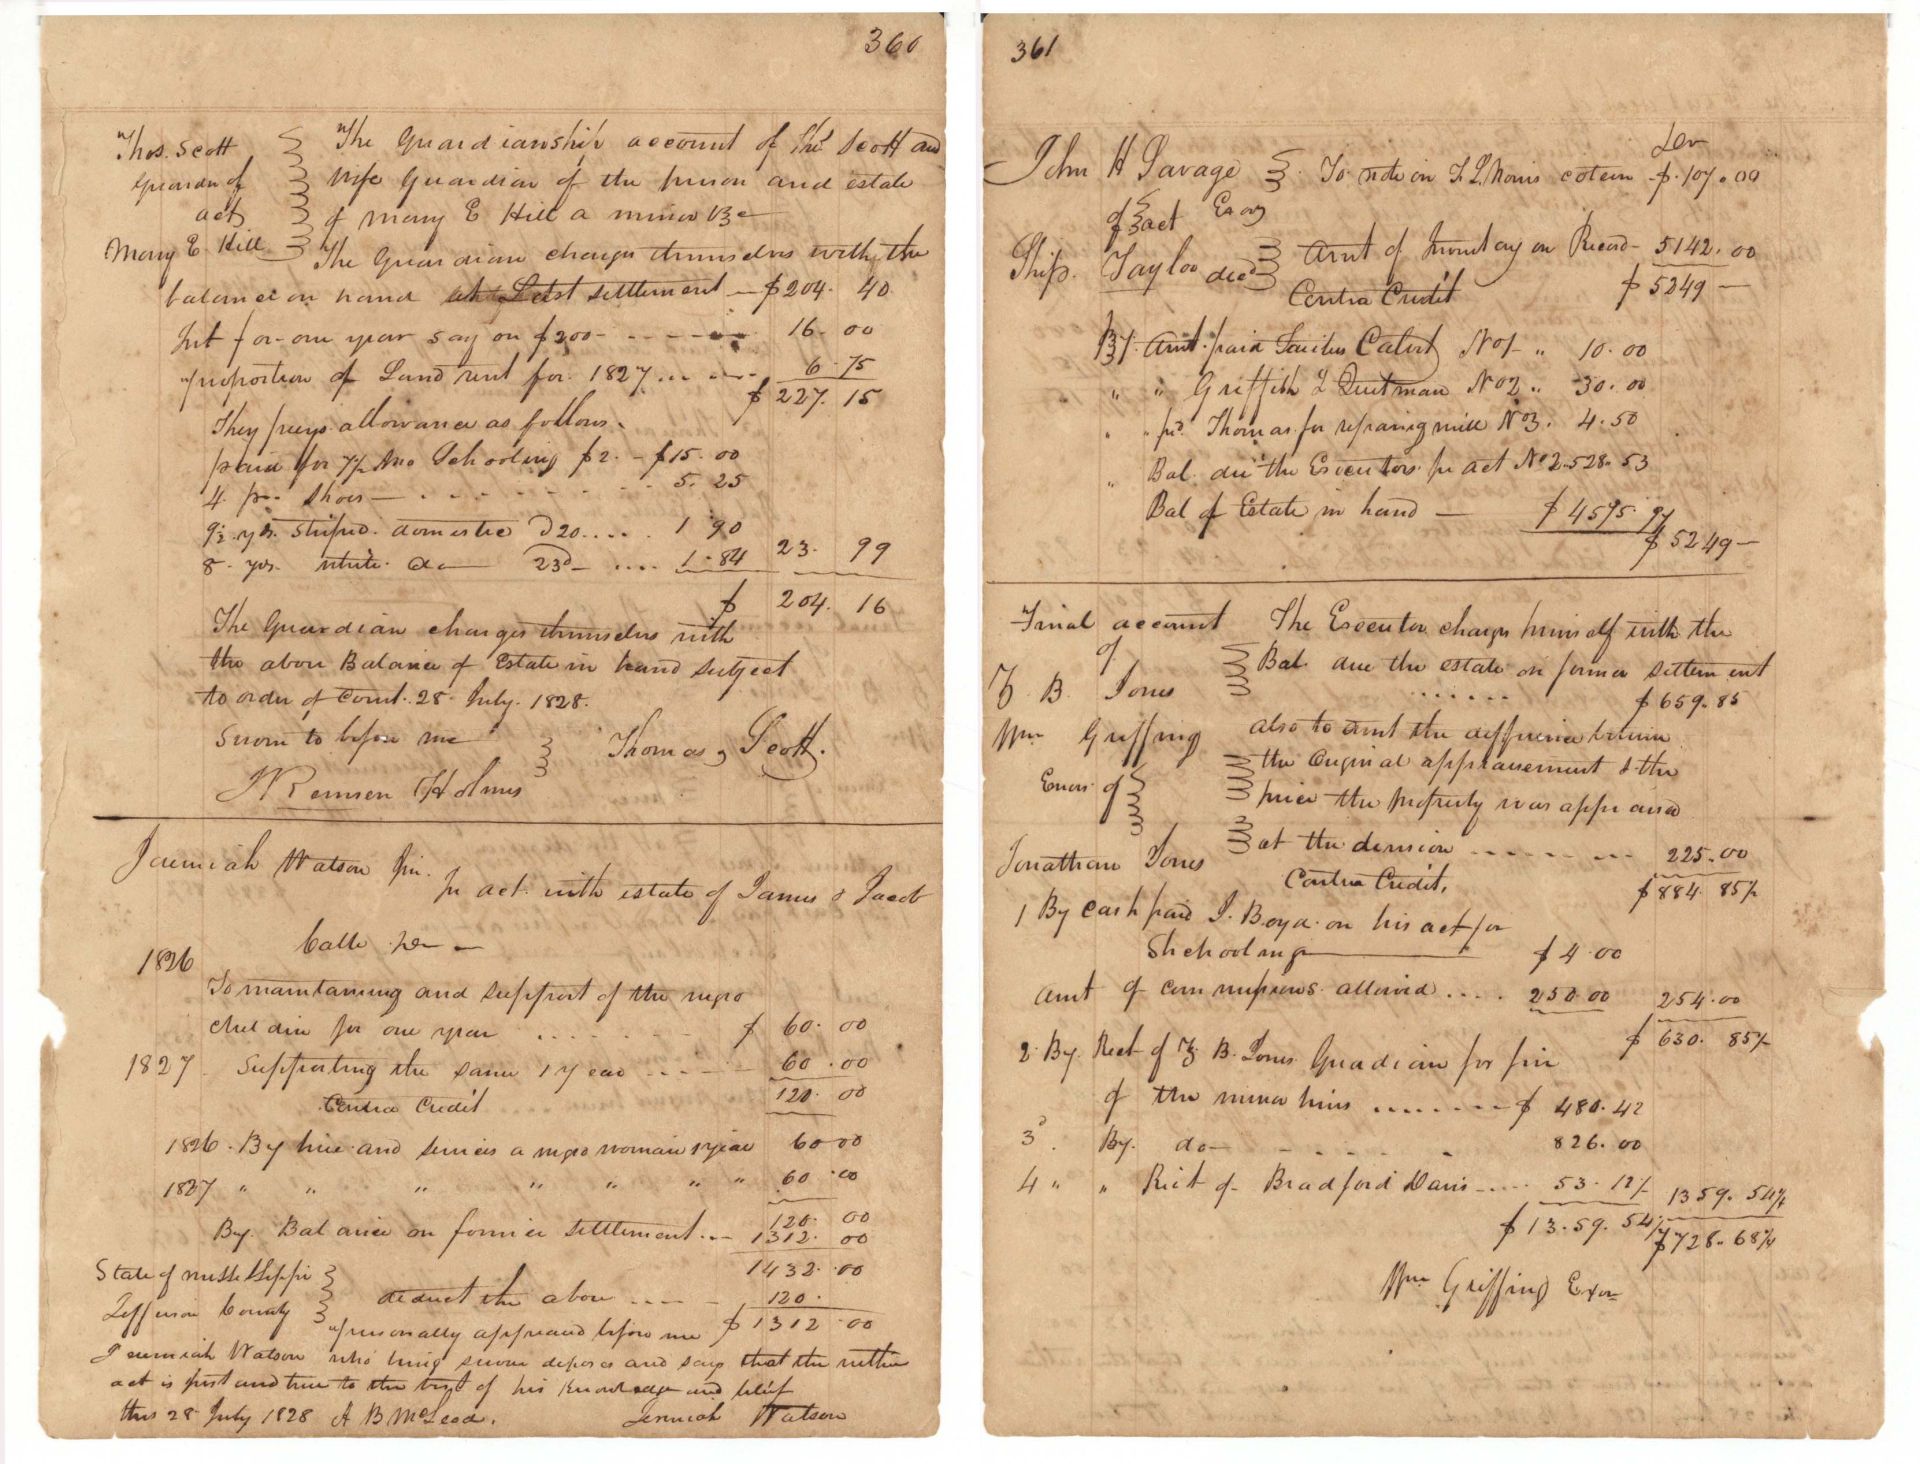 360
Thos. Scott
Guardn of
act
Mary E Hill
The Guardianship account of Thos Scott and
wife Guardian of the person and estate
of Mary E Hill a minor &c
The Guardian charges themselves with the
balance on hand at Last settlement - $204. 40
Int for one year say on $200 - - - - 16. 00
proportion of Land rent for 1827 ... ... 6. 75
$ 227. 15
They prays allowance as follows.
paid for 7½ Mo Schooling $2. - $15. 00
4. pr. Shoes - . . . . . . 5. 25
9½ yds. striped domestic @ 20 .... 1 90
8. yds. white do 23d - .... 1. 84 23. 99
$ 204. 16
The Guardian charges themselves with
the above Balance of Estate in hand subject
to order of Court. 28. July. 1828.
Sworn to before me
Thomas Scott.
Remsen Holmes
Jeremiah Watson
In act. with estate of James & Jacob
1826
To maintaining and support of the negro
children for one year . . . . . . $ 60. 00
1827. Supporting the same 1 year - - - - 60. 00
Contra Credit 120. 00
1826. By hire and services a negro woman 1 year 60 00
1827 " " " " " " " 60. 00
120. 00
By. Balance on former settlement ... 1312. 00
1432. 00
deduct the above .... 120.
$ 1312. 00
State of Mississippi
Jefferson County
personally appeared before me
Jeremiah Watson who being sworn deposes and says that the within
act is just and true to the best of his knowledge and belief
this 28 July 1828 A B McLeod.
Jeremiah Watson
361
John H Savage
Exor
of act
Ship. Tayloe decd
To note on
$. 107. 00
Amt of Inventory on Record - 5142. 00
$ 5249 -
Contra Credit
By. Amt. paid No 1 - " 10. 00
" " Griffith L Quitman No 2 " 30. 00
" " pd. Thomas for repairing mill No 3. 4. 50
" Bal. due the Executors pr act No 2. 528. 53
Bal of Estate in hand - $ 4595. 97
$ 5249 -
Final account
of
B. Jones
Wm Griffing
Exors of
Jonathan Jones
The Executor charges himself with the
Bal. due the estate on former settlement
...... $ 659. 85
also to amt the difference between
the original appraisement & the
price the property was appraised
at the division - - - - - - - - 225. 00
Contra Credit. $ 884. 85½
1 By cash paid J. Boyd on his act for
Shchooling $ 4. 00
Amt of commissions. allowed .... 250. 00 254. 00
$ 630. 85½
2. By. Rect of B. Jones Guardian for five
of the minor heirs ........ $ 480. 42
3d. By. do - - - - - . 826. 00
4 " " Rect of Bradford Davis - .... 53. 12½ 1359. 54½
$ 13.59. 54½ $ 728. 68¾
Wm Griffing Exor